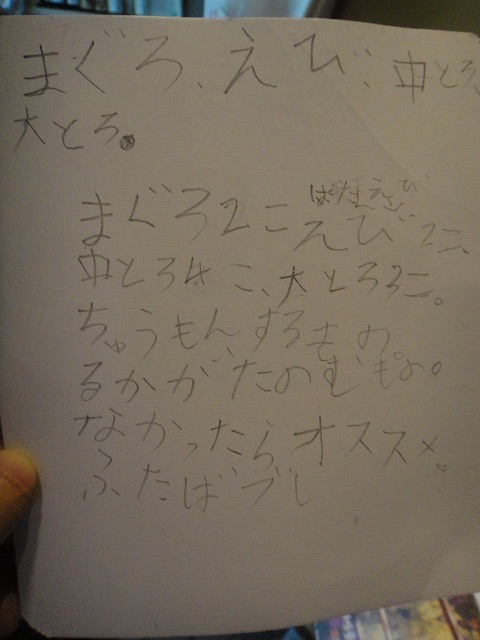 まぐろ、えび、中とろ、
大とろ。
まぐろ2こえび2こ、
中とろ4こ、大とろ3こ。
ちゅうもんするもの
るかがたのむもの。
なかったらオススメ。
ふたばづし